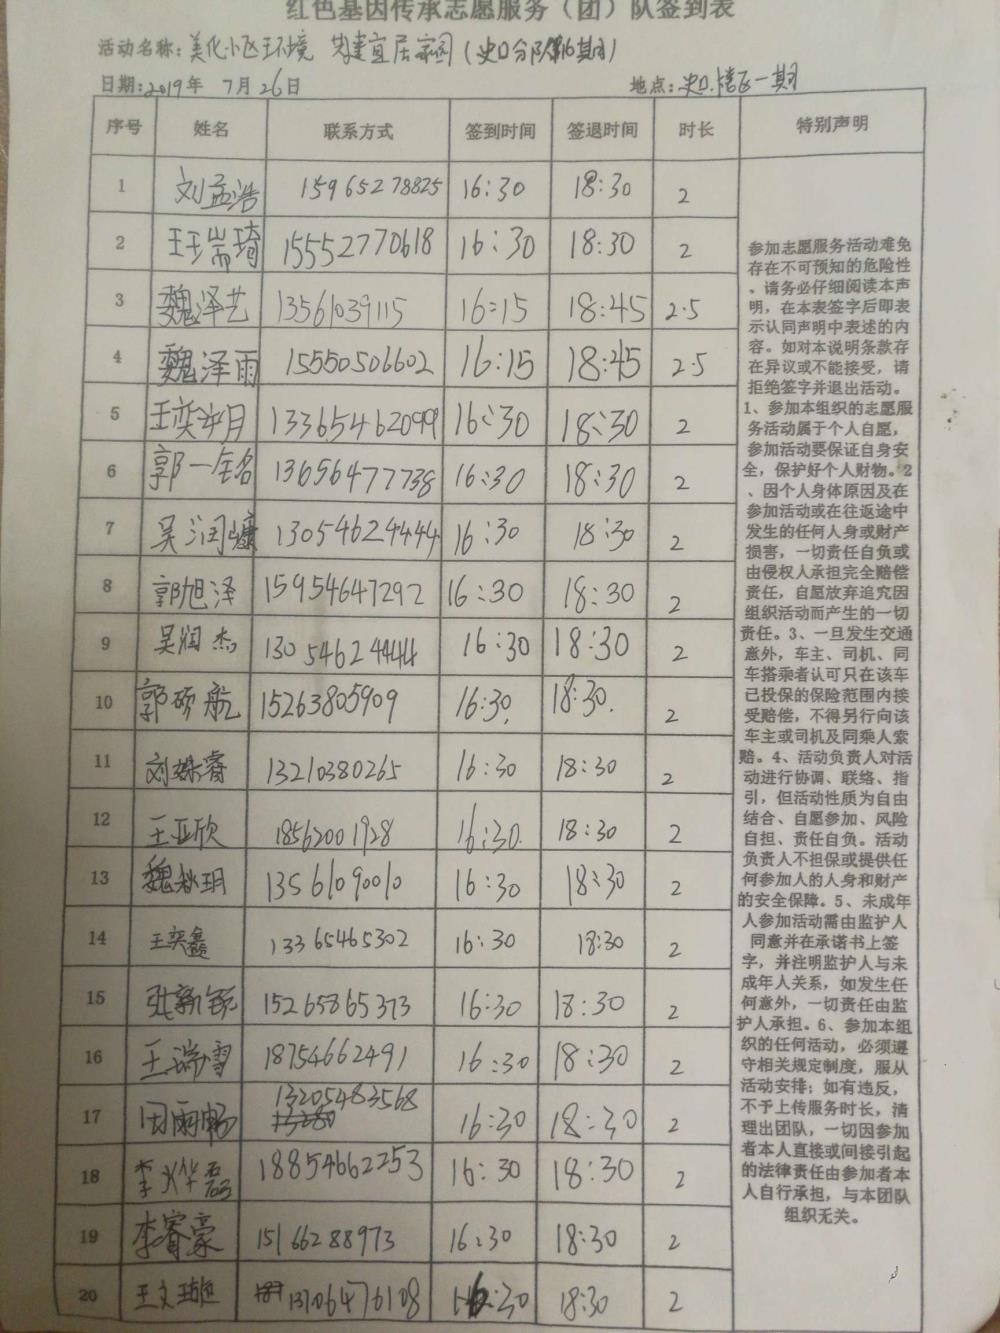 红色基因传承志愿服务（团）队签到表
活动名称：美化小区环境 共建宜居家园（史口分队第16期）
日期：2019年 7月 26日 地点：史口 一期
序号 姓名 联系方式 签到时间 签退时间 时长 特别声明
1 刘孟浩 15965278825 16:30 18:30 2
2 王瑞琦 15552770618 16:30 18:30 2
3 魏泽艺 13561039115 16:15 18:45 2.5
4 魏泽雨 15550506602 16:15 18:45 2.5
5 王奕 月 133654620999 16:30 18:30 2
6 郭一名 13656477738 16:30 18:30 2
7 吴润 13054624444 16:30 18:30 2
8 郭旭泽 15954647292 16:30 18:30 2
9 吴润杰 13054624444 16:30 18:30 2
10 郭硕航 15263805909 16:30. 18:30. 2
11 刘姝睿 13210380265 16:30 18:30 2
12 王亚欣 18562001928 16:30. 18:30 2
13 魏秋玥 13561090010 16:30 18:30 2
14 王奕鑫 13365465302 16:30 18:30 2
15 张新钰 15265865373 16:30 18:30 2
16 王瑞雪 18754662491 16:30 18:30 2
17 周雨畅 13205483568 16:30 18:30 2
18 李烨磊 18854662253 16:30 18:30 2
19 李睿豪 15166288973 16:30 18:30 2
20 王文璇 13106476108 16:30 18:30 2
参加志愿服务活动难免
存在不可预知的危险性
，请务必仔细阅读本声
明，在本表签字后即表
示认同声明中表述的内
容。如对本说明条款存
在异议或不能接受，请
拒绝签字并退出活动。
1、参加本组织的志愿服
务活动属于个人自愿，
参加活动要保证自身安
全，保护好个人财物。2
、因个人身体原因及在
参加活动或在往返途中
发生的任何人身或财产
损害，一切责任自负或
由侵权人承担完全赔偿
责任，自愿放弃追究因
组织活动而产生的一切
责任。3、一旦发生交通
意外，车主、司机、同
车搭乘者认可只在该车
已投保的保险范围内接
受赔偿，不得另行向该
车主或司机及同乘人索
赔。4、活动负责人对活
动进行协调、联络、指
引，但活动性质为自由
结合、自愿参加、风险
自担、责任自负。活动
负责人不担保或提供任
何参加人的人身和财产
的安全保障。5、未成年
人参加活动需由监护人
同意并在承诺书上签
字，并注明监护人与未
成年人关系，如发生任
何意外，一切责任由监
护人承担。6、参加本组
织的任何活动，必须遵
守相关规定制度，服从
活动安排；如有违反，
不予上传服务时长，清
理出团队，一切因参加
者本人直接或间接引起
的法律责任由参加者本
人自行承担，与本团队
组织无关。